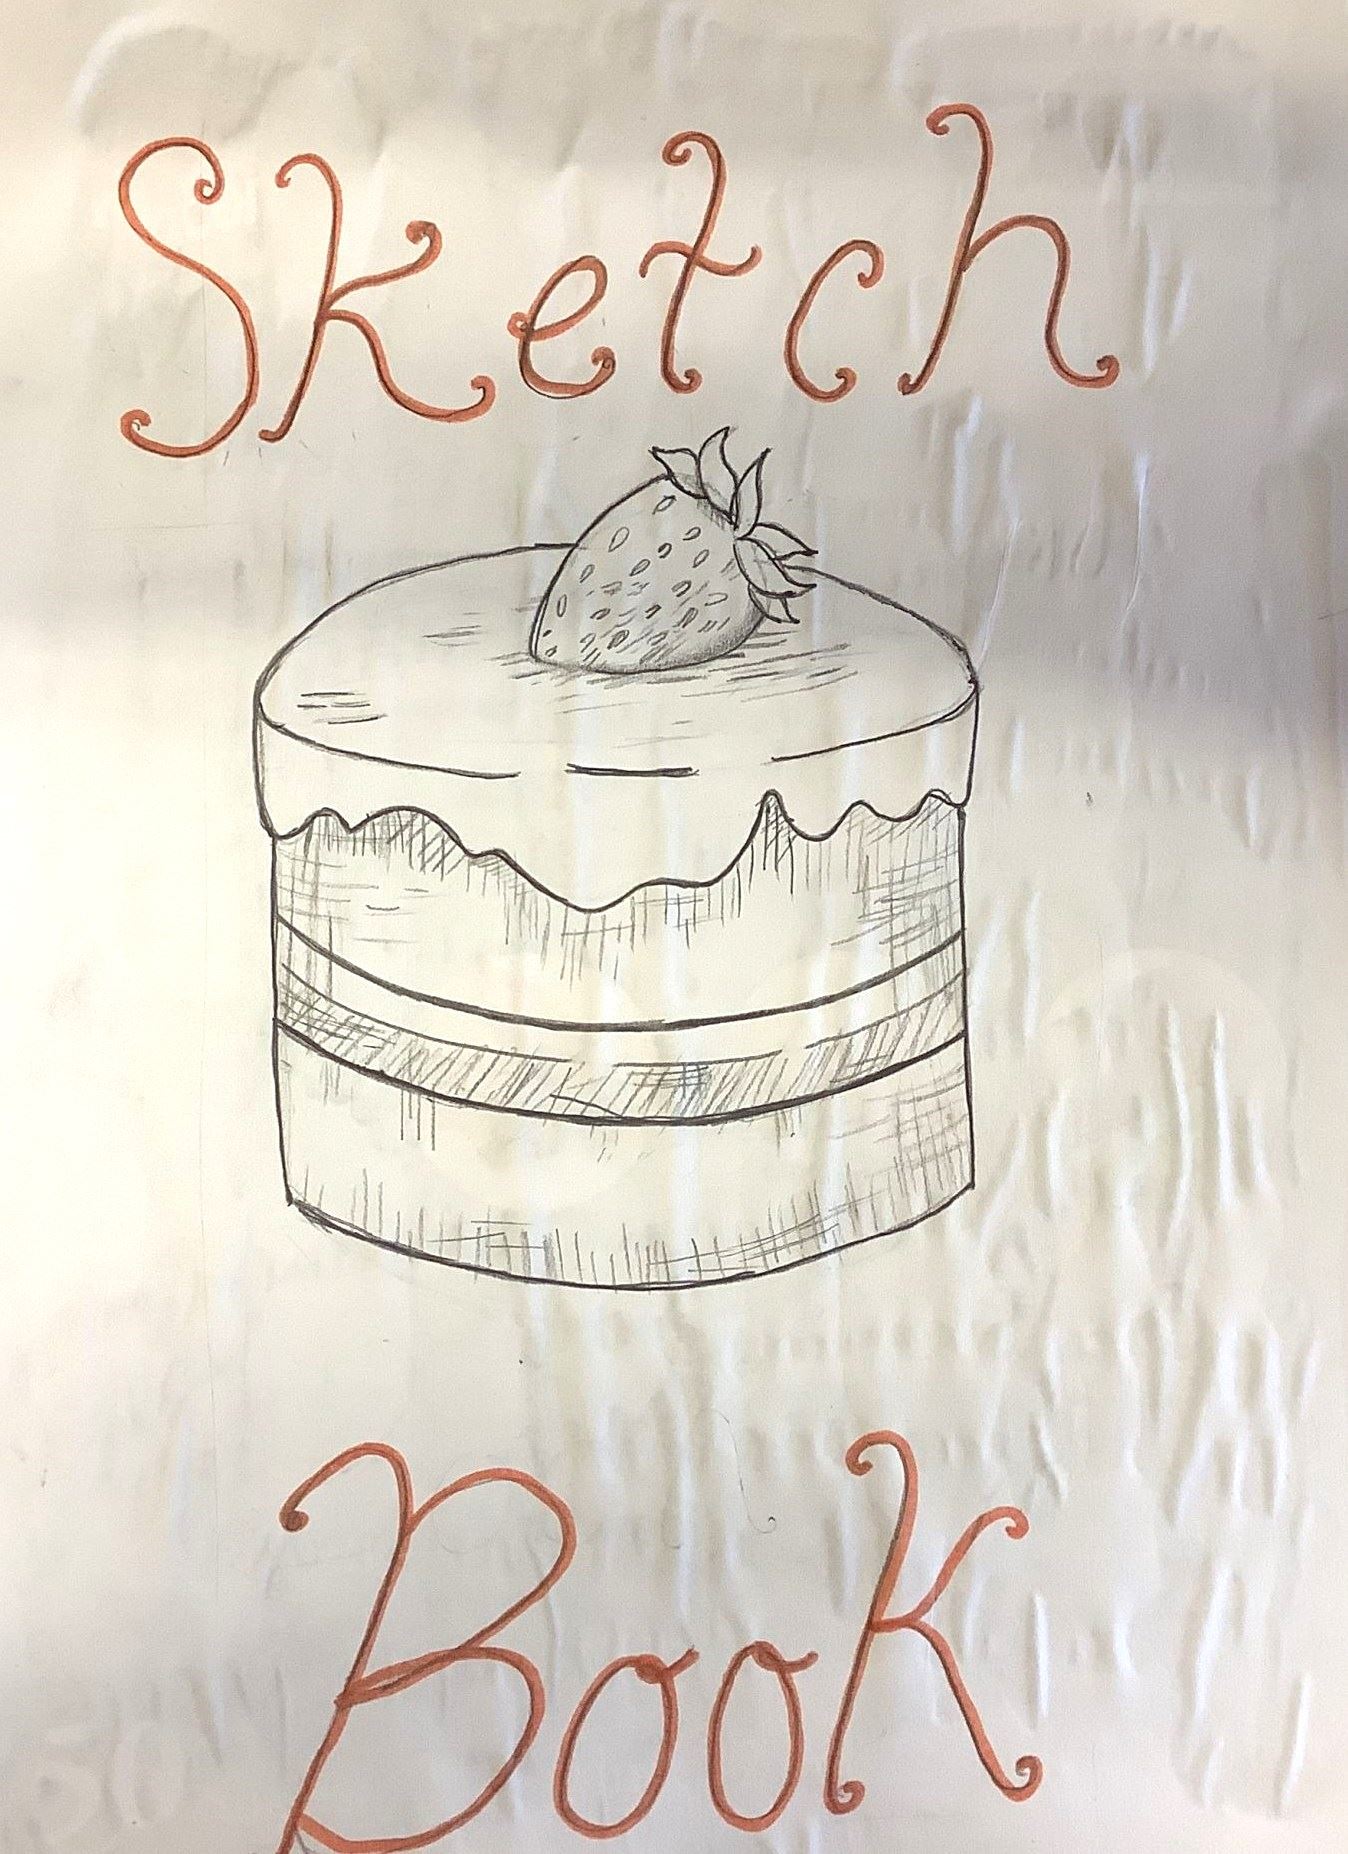 Sketch
Book